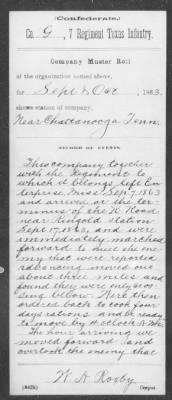 (Confederate.)
Co. G, 7 Regiment Texas Infantry.
Company Muster Roll
of the organization named above,
for Sept & Oct, 1863.
shows station of company,
Near Chattanooga Tenn.
RECORD OF EVENTS.
This company together
with the Regiment to
which it belongs left En-
terprise Miss Sep. 7, 1863
and arrived at the ter-
minus of the R Road
near Ringold Station
Sept. 17, 1863, and were
immediately marched
forward to meet the ene-
my that were reported
advancing moved on
about three miles and
found they were only cros-
sing below. Next then
ordered back to cook four
days rations and be ready
to move by 4 o'clock A.M.
The hour arriving we
moved forward and
overtook the enemy that
W. A. Rorby
Copyist.